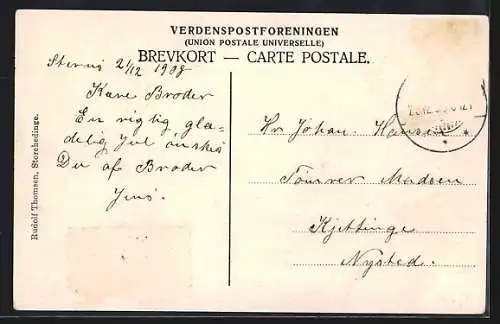 VERDENSPOSTFORENINGEN
(UNION POSTALE UNIVERSELLE)
BREVKORT — CARTE POSTALE.
21/12 1908
Kære Broder
En rigtig glæ-
delig Jul ønskes
Du af Broder
Jens.
Hr Johan. Hansen
Tømrer Madsen
Kjettinge
Nysted.
Rudolf Thomsen, Storehedinge.